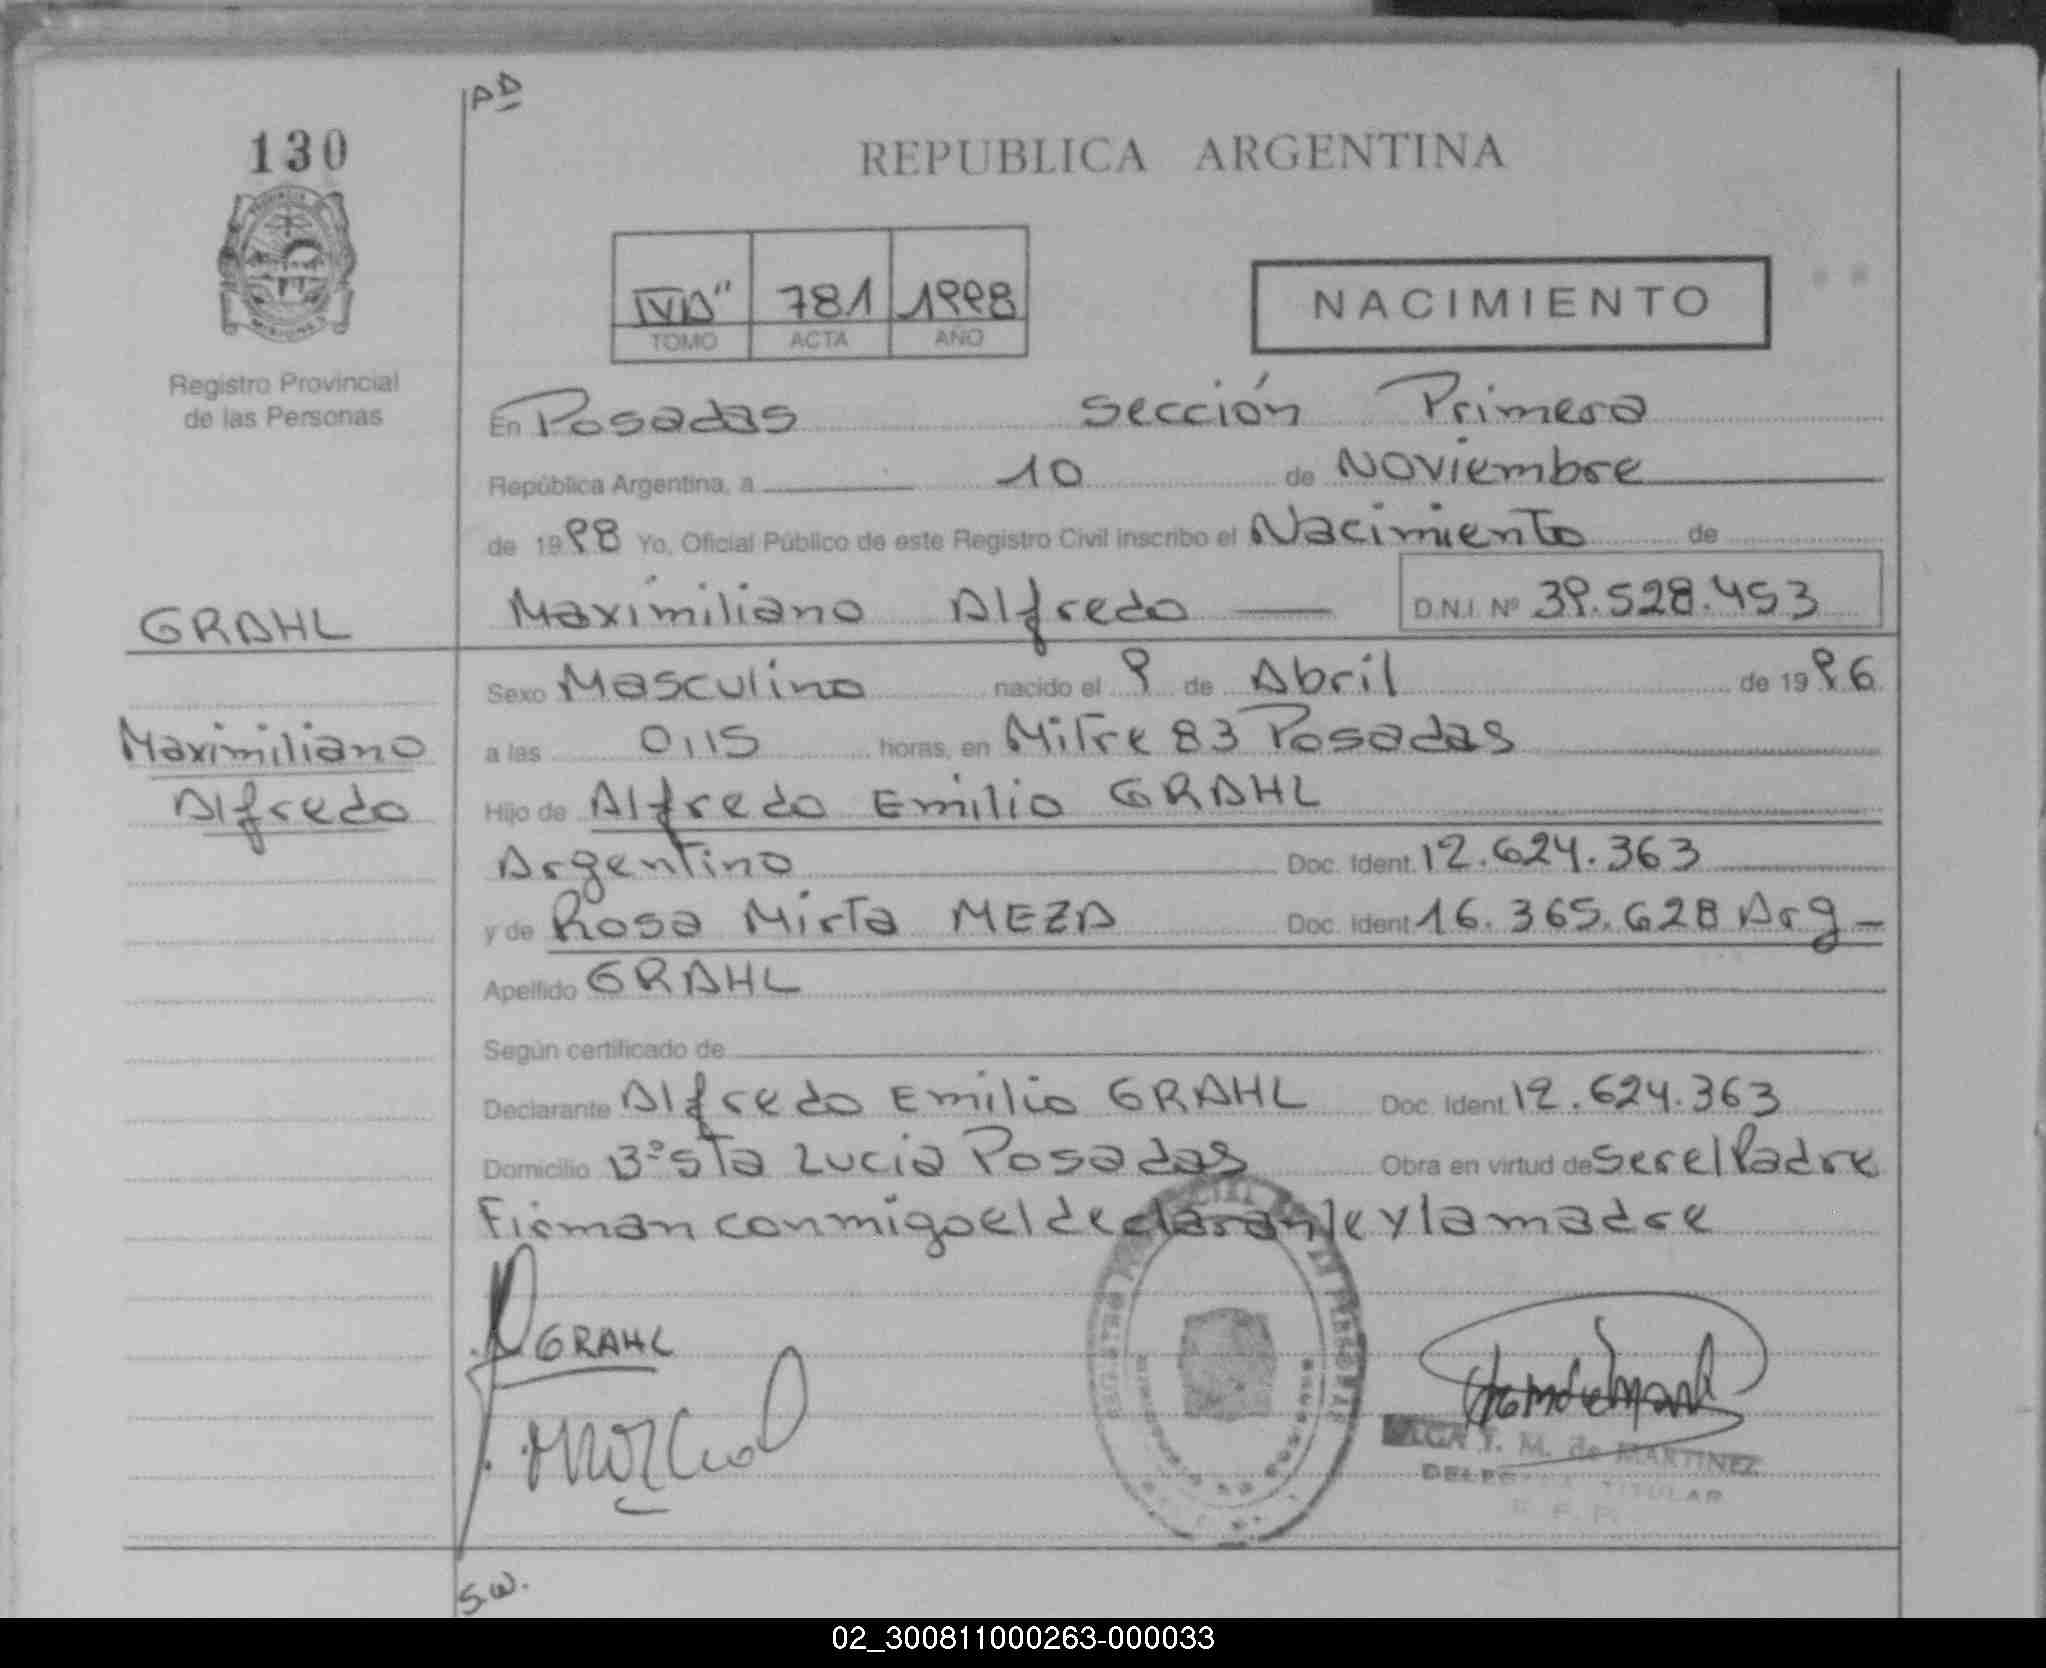 AD
130
REPUBLICA ARGENTINA
IV"A" 781 1998
TOMO ACTA AÑO
NACIMIENTO
Registro Provincial
de las Personas
En Posadas Sección Primera
República Argentina, a 10 de Noviembre
de 1998 Yo, Oficial Público de este Registro Civil inscribo el Nacimiento de
GRAHL
Maximiliano Alfredo D.N.I. Nº 39.528.453
Sexo Masculino nacido el 9 de Abril de 1996
Maximiliano
a las 0,15 horas, en Mitre 83 Posadas
Alfredo
Hijo de Alfredo Emilio GRAHL
Argentino Doc. Ident. 12.624.363
y de Rosa Mirta MEZA Doc. Ident. 16.365.628 Arg
Apellido GRAHL
Según certificado de
Declarante Alfredo Emilio GRAHL Doc. Ident. 12.624.363
Domicilio Bº Sta Lucia Posadas Obra en virtud de ser el Padre
Firman conmigo el declarante y la madre
GRAHL
T. M. de MARTINEZ
TITULAR
S.W.
02_300811000263-000033